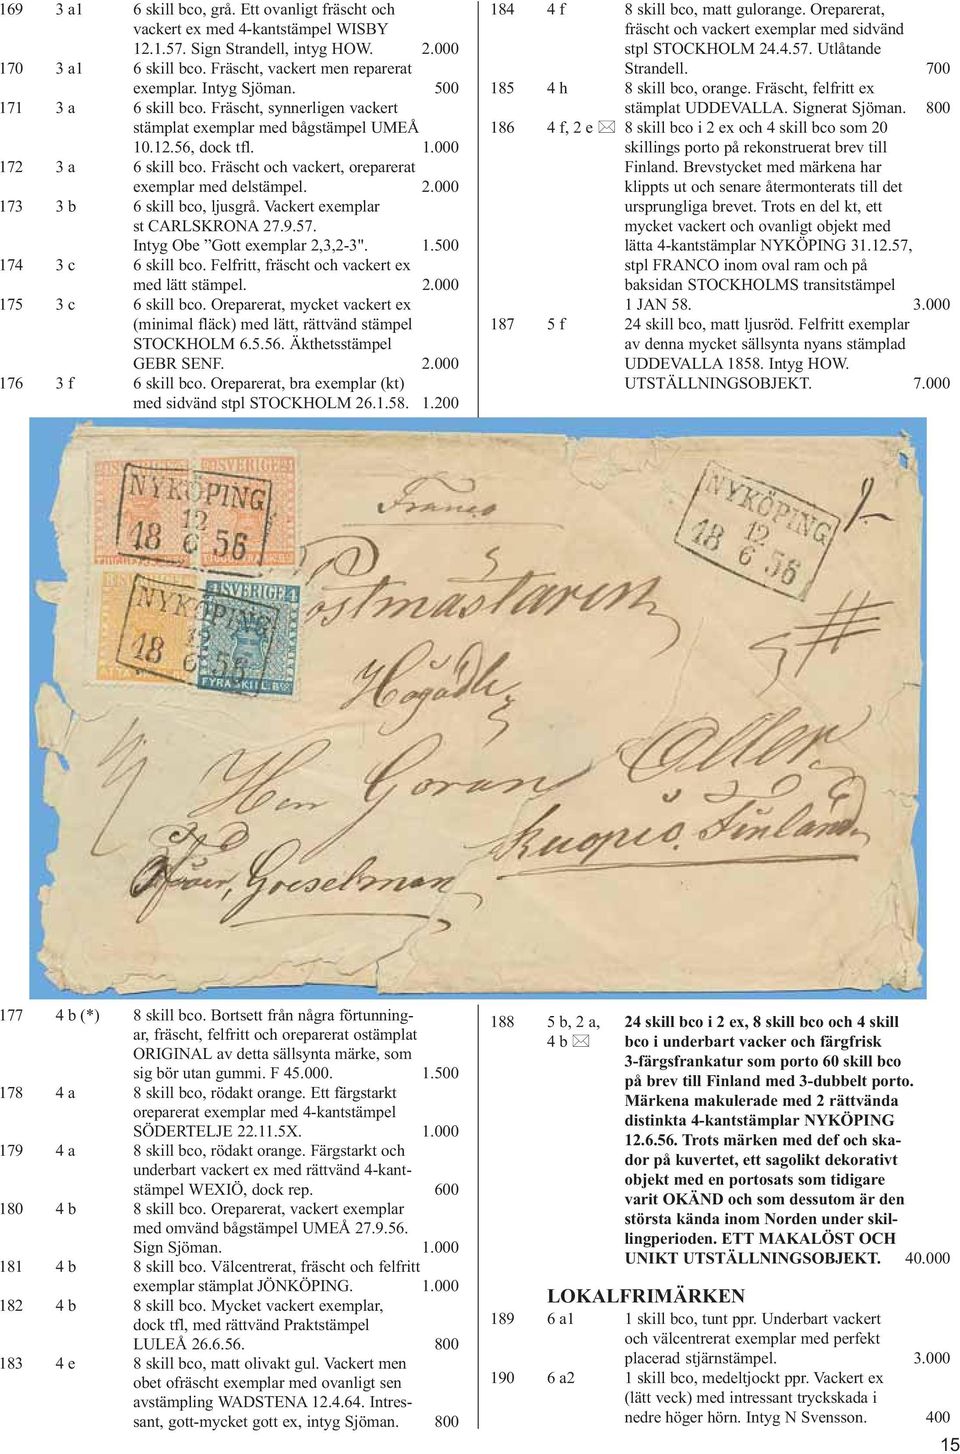 169 3 a1 6 skill bco, grå. Ett ovanligt fräscht och
vackert ex med 4-kantstämpel WISBY
12.1.57. Sign Strandell, intyg HOW. 2.000
170 3 a1 6 skill bco. Fräscht, vackert men reparerat
exemplar. Intyg Sjöman. 500
171 3 a 6 skill bco. Fräscht, synnerligen vackert
stämplat exemplar med bågstämpel UMEÅ
10.12.56, dock tfl. 1.000
172 3 a 6 skill bco. Fräscht och vackert, oreparerat
exemplar med delstämpel. 2.000
173 3 b 6 skill bco, ljusgrå. Vackert exemplar
st CARLSKRONA 27.9.57.
Intyg Obe ”Gott exemplar 2,3,2-3". 1.500
174 3 c 6 skill bco. Felfritt, fräscht och vackert ex
med lätt stämpel. 2.000
175 3 c 6 skill bco. Oreparerat, mycket vackert ex
(minimal fläck) med lätt, rättvänd stämpel
STOCKHOLM 6.5.56. Äkthetsstämpel
GEBR SENF. 2.000
176 3 f 6 skill bco. Oreparerat, bra exemplar (kt)
med sidvänd stpl STOCKHOLM 26.1.58. 1.200
184 4 f 8 skill bco, matt gulorange. Oreparerat,
fräscht och vackert exemplar med sidvänd
stpl STOCKHOLM 24.4.57. Utlåtande
Strandell. 700
185 4 h 8 skill bco, orange. Fräscht, felfritt ex
stämplat UDDEVALLA. Signerat Sjöman. 800
186 4 f, 2 e ✉ 8 skill bco i 2 ex och 4 skill bco som 20
skillings porto på rekonstruerat brev till
Finland. Brevstycket med märkena har
klippts ut och senare återmonterats till det
ursprungliga brevet. Trots en del kt, ett
mycket vackert och ovanligt objekt med
lätta 4-kantstämplar NYKÖPING 31.12.57,
stpl FRANCO inom oval ram och på
baksidan STOCKHOLMS transitstämpel
1 JAN 58. 3.000
187 5 f 24 skill bco, matt ljusröd. Felfritt exemplar
av denna mycket sällsynta nyans stämplad
UDDEVALLA 1858. Intyg HOW.
UTSTÄLLNINGSOBJEKT. 7.000
SVERIGE
NYKÖPING
12
18 6 56
NYKÖPING
12
18 6 56
Franco
SVERIGE
NYKÖPING
12
18 6 56
FYRA SKILL. BCO
Postmästaren
Högädle
Herr Göran Oller
Kuopio. Finland
Göeselman
177 4 b (*) 8 skill bco. Bortsett från några förtunning-
ar, fräscht, felfritt och oreparerat ostämplat
ORIGINAL av detta sällsynta märke, som
sig bör utan gummi. F 45.000. 1.500
178 4 a 8 skill bco, rödakt orange. Ett färgstarkt
oreparerat exemplar med 4-kantstämpel
SÖDERTELJE 22.11.5X. 1.000
179 4 a 8 skill bco, rödakt orange. Färgstarkt och
underbart vackert ex med rättvänd 4-kant-
stämpel WEXIÖ, dock rep. 600
180 4 b 8 skill bco. Oreparerat, vackert exemplar
med omvänd bågstämpel UMEÅ 27.9.56.
Sign Sjöman. 1.000
181 4 b 8 skill bco. Välcentrerat, fräscht och felfritt
exemplar stämplat JÖNKÖPING. 1.000
182 4 b 8 skill bco. Mycket vackert exemplar,
dock tfl, med rättvänd Praktstämpel
LULEÅ 26.6.56. 800
183 4 e 8 skill bco, matt olivakt gul. Vackert men
obet ofräscht exemplar med ovanligt sen
avstämpling WADSTENA 12.4.64. Intres-
sant, gott-mycket gott ex, intyg Sjöman. 800
188 5 b, 2 a, 24 skill bco i 2 ex, 8 skill bco och 4 skill
4 b ✉ bco i underbart vacker och färgfrisk
3-färgsfrankatur som porto 60 skill bco
på brev till Finland med 3-dubbelt porto.
Märkena makulerade med 2 rättvända
distinkta 4-kantstämplar NYKÖPING
12.6.56. Trots märken med def och ska-
dor på kuvertet, ett sagolikt dekorativt
objekt med en portosats som tidigare
varit OKÄND och som dessutom är den
största kända inom Norden under skil-
lingperioden. ETT MAKALÖST OCH
UNIKT UTSTÄLLNINGSOBJEKT. 40.000
LOKALFRIMÄRKEN
189 6 a1 1 skill bco, tunt ppr. Underbart vackert
och välcentrerat exemplar med perfekt
placerad stjärnstämpel. 3.000
190 6 a2 1 skill bco, medeltjockt ppr. Vackert ex
(lätt veck) med intressant tryckskada i
nedre höger hörn. Intyg N Svensson. 400
15